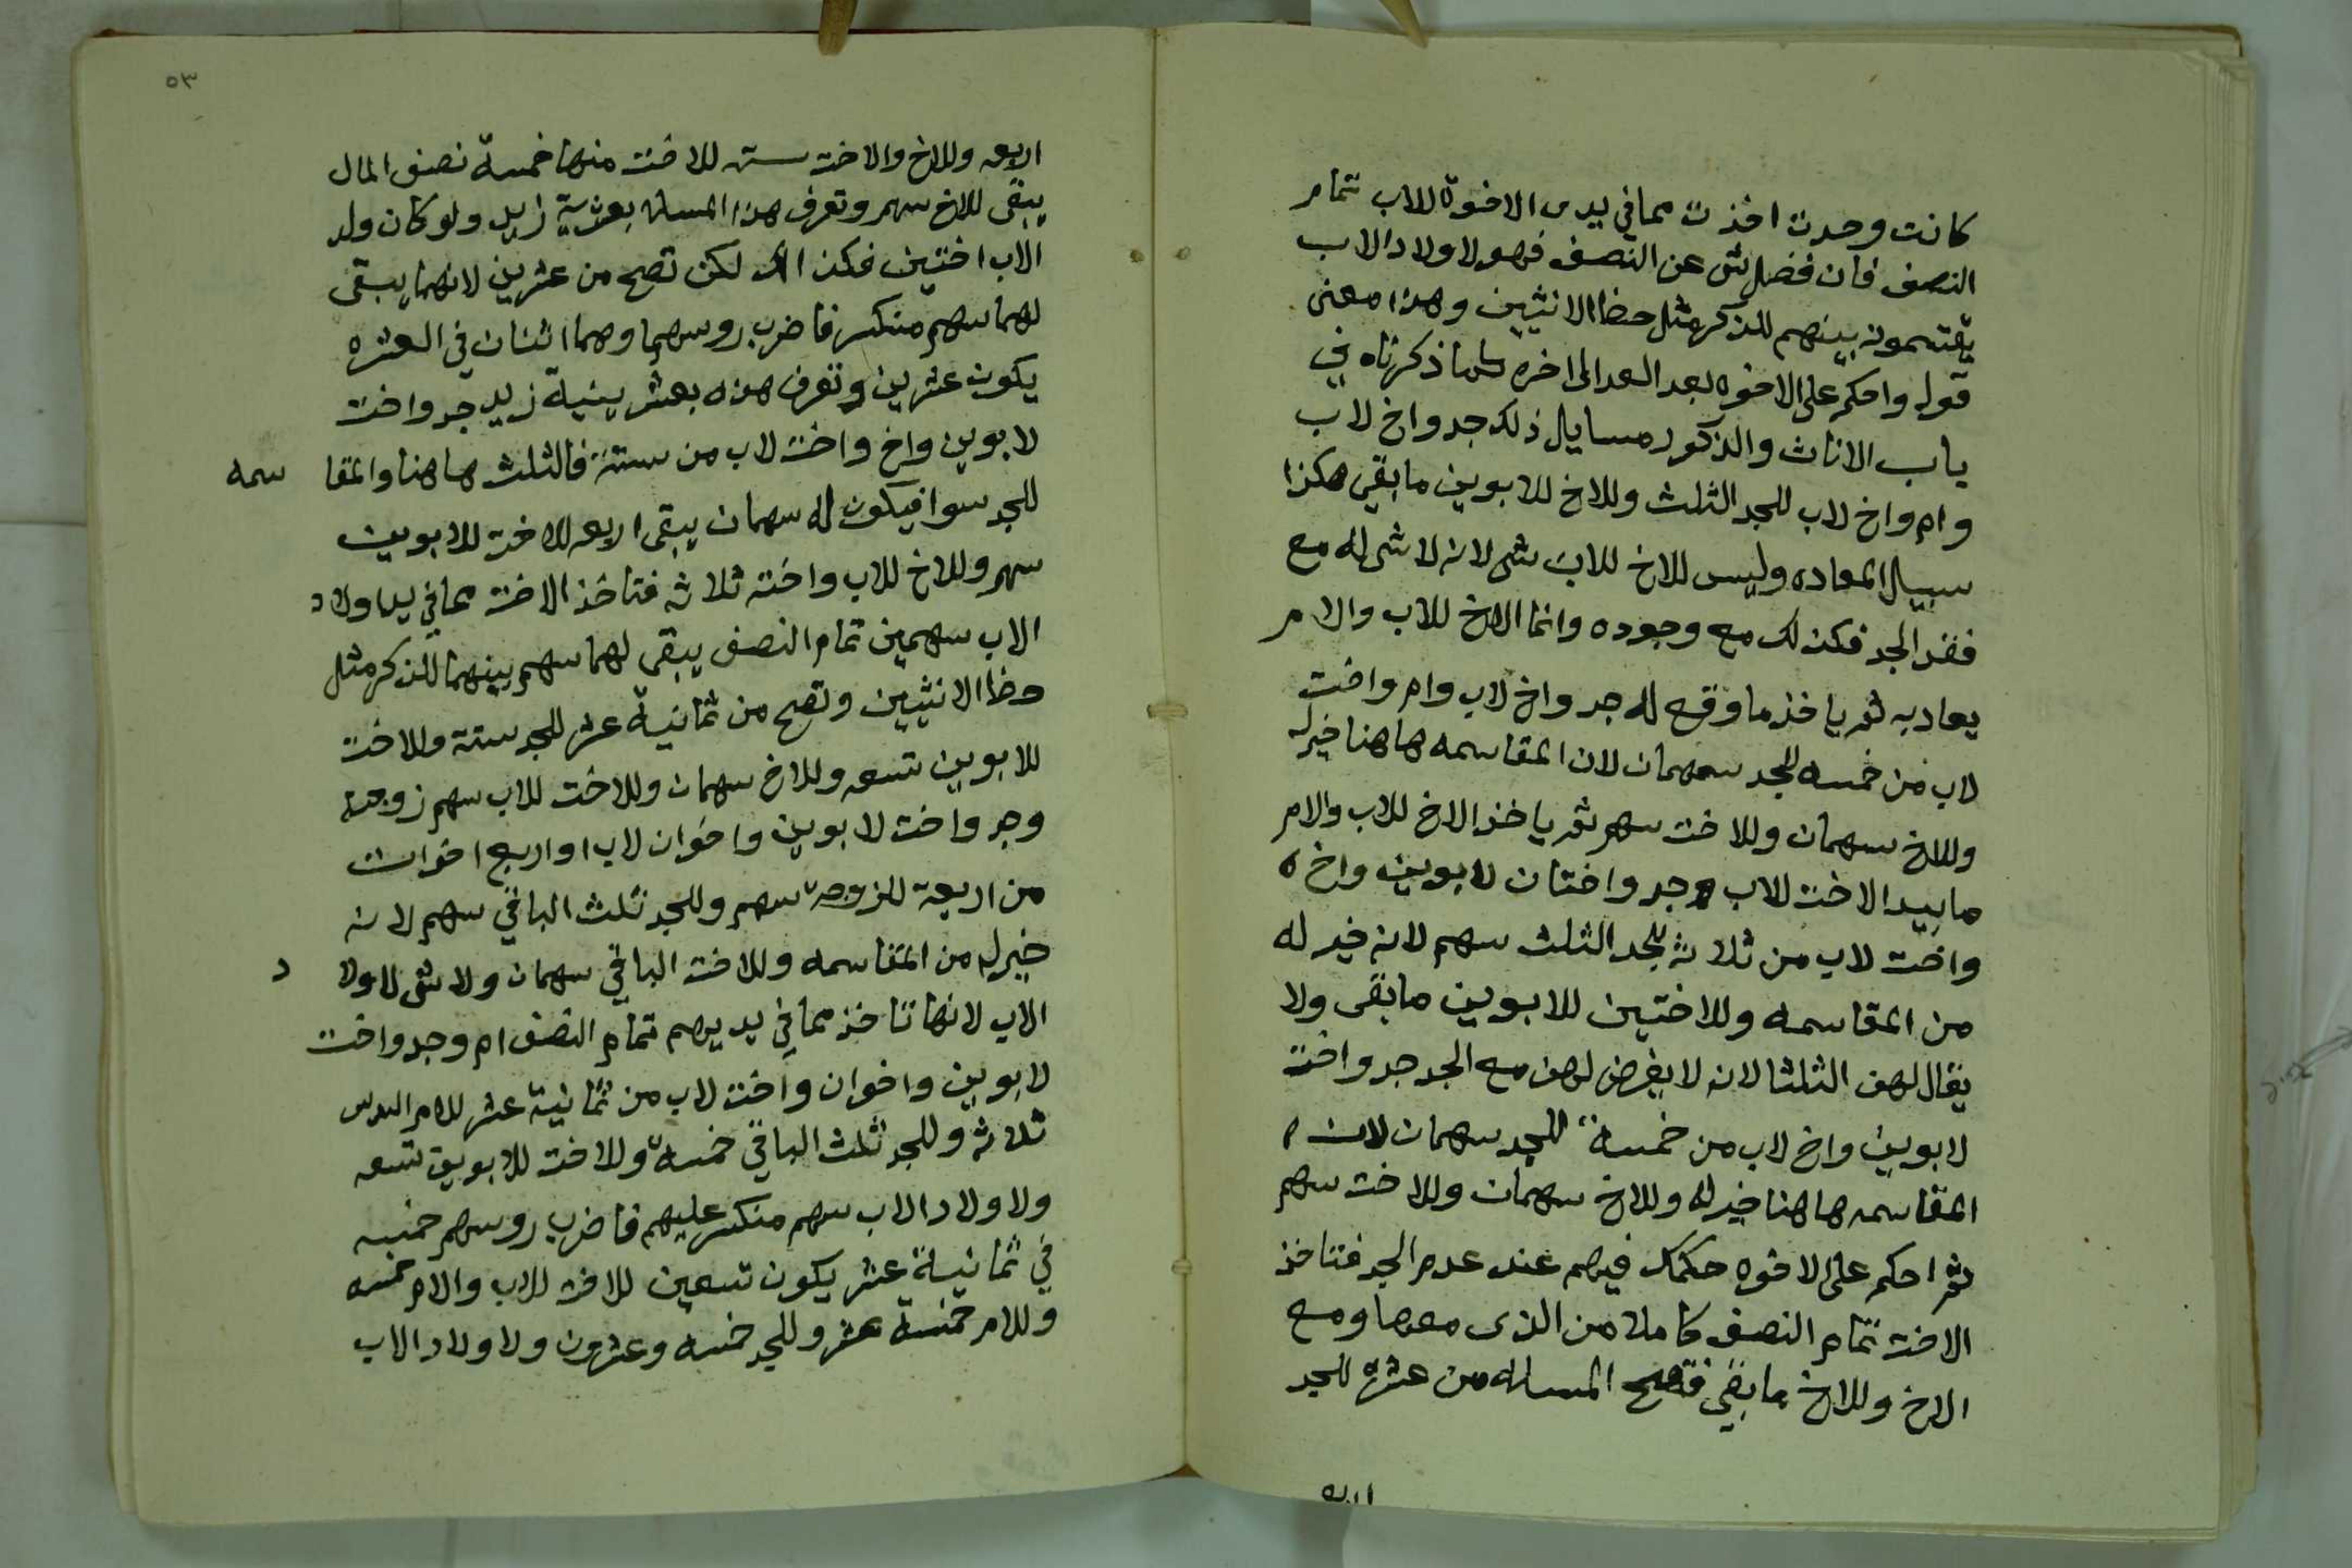 كانت وحدت اخذت مما في يدي الاخوة للاب تمام
النصف فان فضل شي عن النصف فهو لاولاد الاب
يقتسمونه بينهم للذكر مثل حظ الانثيين وهذا معنى
قوله واحكم على الاخوه بعد العد الى اخره كما ذكرناه في
باب الاناث والذكور مسايل ذلك جد واخ لاب
وام واخ لاب للجد الثلث وللاخ للابوين ما بقي هكذا
سبيل المعاده وليس للاخ للاب شي لانه لا شي له مع
فقد الجد فكذلك مع وجوده وانما الاخ للاب والام
يعاد به ثم ياخذ ما وقع له جد واخ لاب وام واخت
لاب من خمسه للجد سهمان لان المقاسمه هاهنا خير له
وللاخ سهمان وللاخت سهم ثم ياخذ الاخ للاب والام
ما بيد الاخت للاب جد واختان لابوين واخ
واخت لاب من ثلاثه للجد الثلث سهم لانه خير له
من المقاسمه وللاختين للابوين ما بقى ولا
يقال لهن الثلثا لانه لا يفرض لهن مع الجد جد واخت
لابوين واخ لاب من خمسة للجد سهمان لان
المقاسمه هاهنا خير له وللاخ سهمان وللاخت سهم
ثم احكم على الاخوه حكمك فيهم عند عدم الجد فتاخذ
الاخت تمام النصف كاملا من الذى معها ومع
الاخ وللاخ ما بقي فتصح المساله من عشرة للجد
اربعه
٥٣
اربعه وللاخ والاخت سته للاخت منها خمسة نصف المال
يبقى للاخ سهم وتعرف هذا المساله بعشرية زيد ولو كان ولد
الاب اختين فكذالك لكن تصح من عشرين لانهما يبقى
لهما سهم منكسر فاضرب روسهما وهما اثنان في العشره
يكون عشرين وتعرف هذه بعشرينية زيد جد واخت
لابوين واخ واخت لاب من ستة فالثلث هاهنا والمقا سمه
للجد سوا فيكون له سهمان يبقى اربعه للاخت للابوين
سهم وللاخ للاب واخته ثلاثه فتاخذ الاخت مما في يد اولاد
الاب سهمين تمام النصف يبقى لهما سهم بينهما للذكر مثل
حظ الانثيين وتصح من ثمانية عشر للجد ستة وللاخت
للابوين تسعه وللاخ سهمان وللاخت للاب سهم زوجة
وجد واخت لابوين واخوان لاب او اربع اخوات
من اربعة للزوجة سهم وللجد ثلث الباقي سهم لانه
خير له من المقاسمه وللاخت الباقي سهمان ولا شي لاولا د
الاب لانها تاخذ مما في يديهم تمام النصف ام وجد واخت
لابوين واخوان واخت لاب من ثمانية عشر للام السدس
ثلاثه وللجد ثلث الباقي خمسة وللاخت للابوين تسعه
ولاولاد الاب سهم منكسر عليهم فاضرب روسهم خمسه
في ثمانية عشر يكون تسعين للاخت للاب والام خمسه
وللام خمسة عشر وللجد خمسه وعشرون ولاولاد الاب